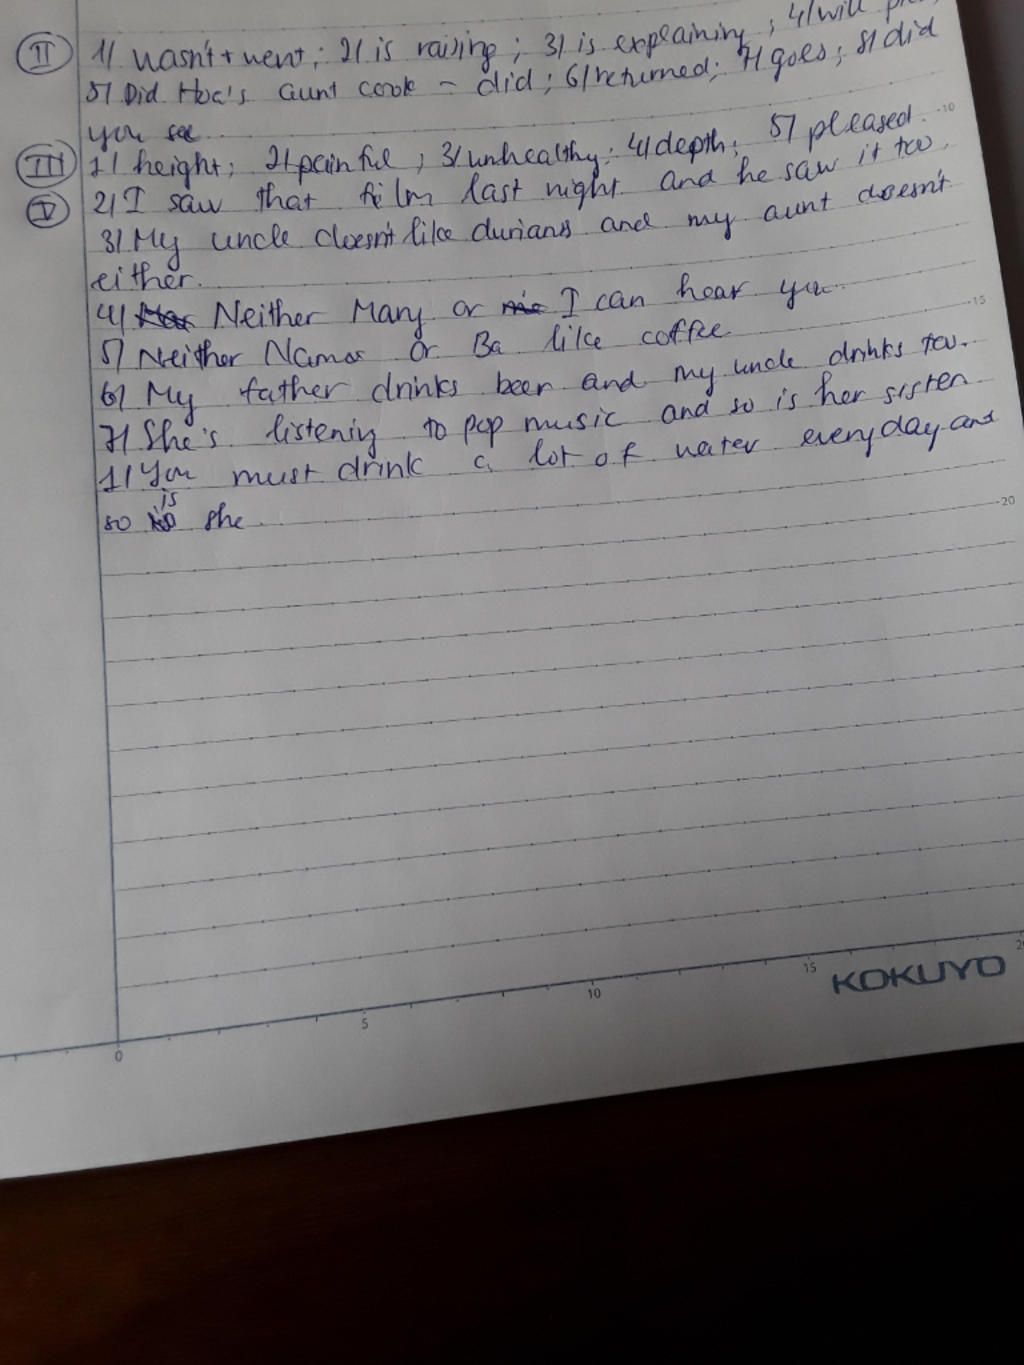 II 1/ wasn't + went; 2/ is raising; 3/ is explaining; 4/ will
5/ Did Hoa's aunt cook - did; 6/ returned; 7/ goes; 8/ did
you see
III 1/ height; 2/ painful; 3/ unhealthy; 4/ depth; 5/ pleased.
V 2/ I saw that film last night and he saw it too.
3/ My uncle doesn't like durians and my aunt doesn't
either.
4/ Neither Mary or I can hear you.
5/ Neither Nam or Ba like coffee
6/ My father drinks beer and my uncle drinks too.
7/ She's listening to pop music and so is her sister
1/ You must drink a lot of water everyday and
so is she
10
15
20
0 5 10 15
KOKUYO